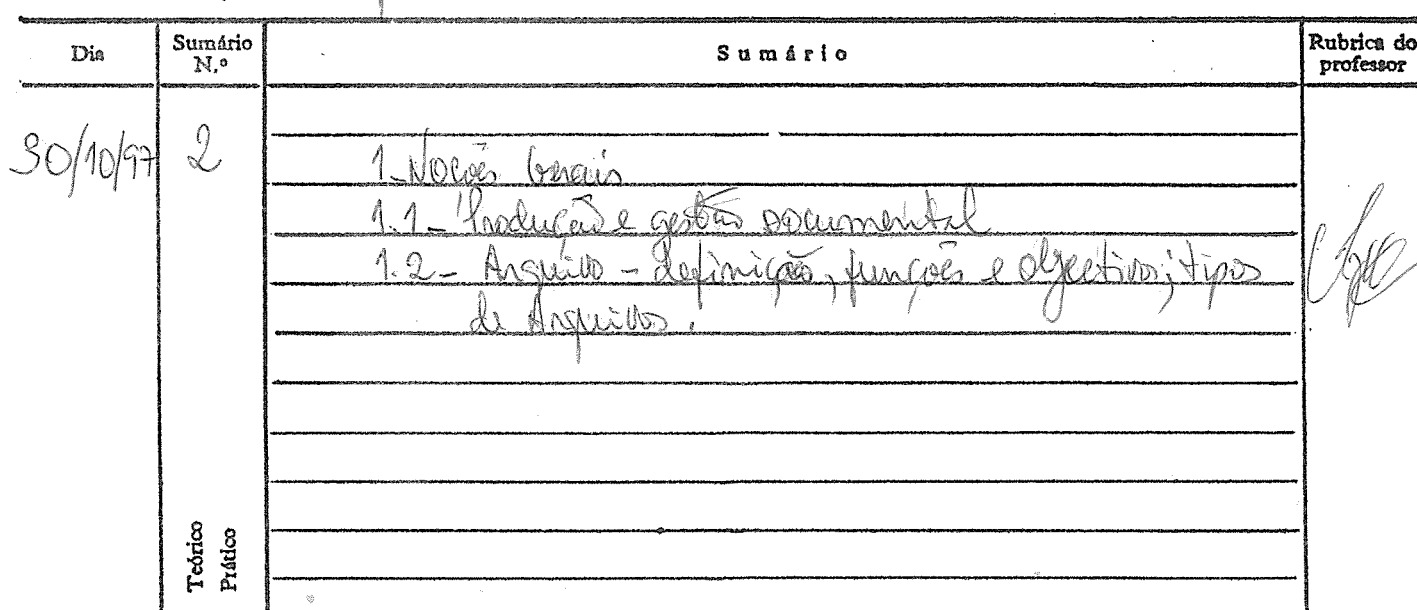 Dia
Sumário N.º
Sumário
Rubrica do professor
30/10/97
2
1-Noções Gerais
1.1- Produção e gestão documental
1.2- Arquivo - definição, funções e objectivos; tipos
de Arquivos.
Teórico
Prático